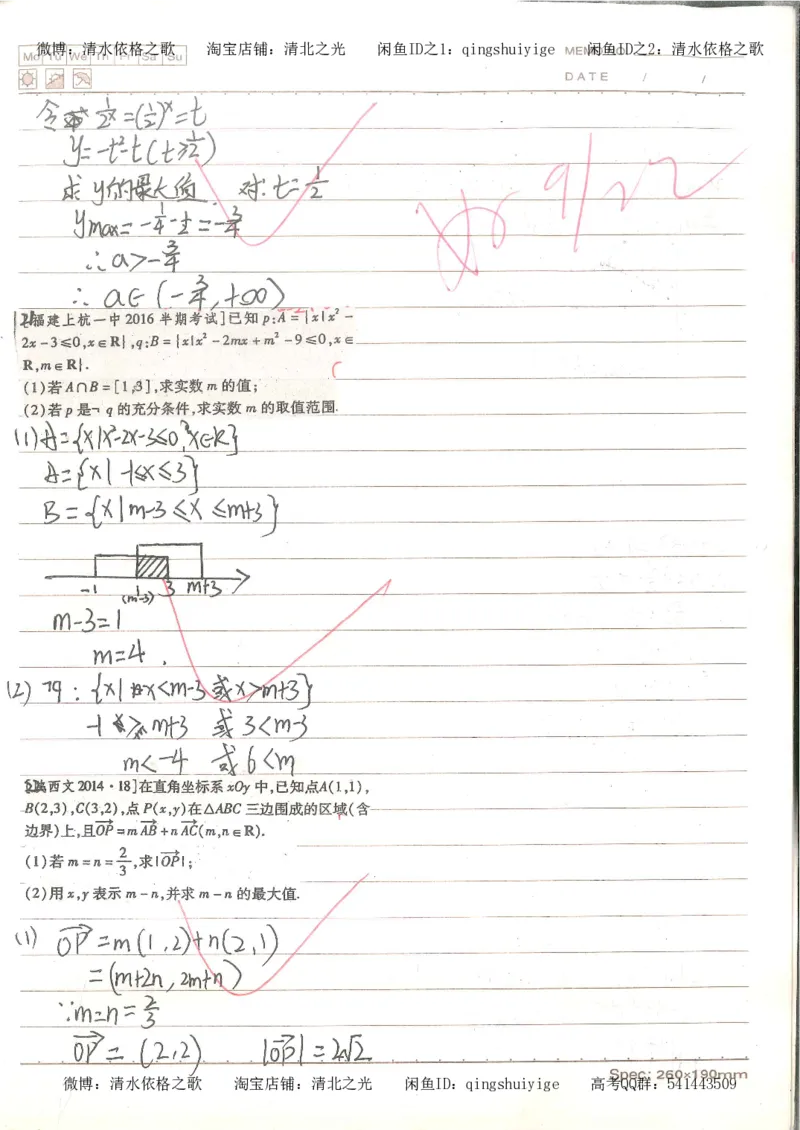 微博：清水依格之歌 淘宝店铺：清北之光 闲鱼ID之1：qingshuiyige 闲鱼ID之2：清水依格之歌
Mo Tu We Th Fr Sa Su
DATE / /
令 1/2ˣ=(1/2)ˣ=t
y=-t²-t(t≥1/2)
求y的最大值 对 t=1/2
ymax=-1/4-1/2=-3/4
∴a>-3/4
∴a∈(-3/4,+∞)
好 9/22
福建上杭一中2016半期考试]已知p:A={x|x²-
2x-3≤0,x∈R},q:B={x|x²-2mx+m²-9≤0,x∈
R,m∈R}.
(1)若A∩B=[1,3],求实数m的值;
(2)若p是¬q的充分条件,求实数m的取值范围.
(1)A={x|x²-2x-3≤0,x∈R}
A={x|-1≤x≤3}
B={x|m-3≤x≤m+3}
-1 1 3 m+3
(m-3)
m-3=1
m=4.
(2)¬q:{x|x<m-3或x>m+3}
-1>m+3 或 3<m-3
m<-4 或 6<m
陕西文2014·18]在直角坐标系xOy中,已知点A(1,1),
B(2,3),C(3,2),点P(x,y)在△ABC三边围成的区域(含
边界)上,且OP=mAB+nAC(m,n∈R).
(1)若m=n=2/3,求|OP|;
(2)用x,y表示m-n,并求m-n的最大值.
(1) OP=m(1,2)+n(2,1)
=(m+2n,2m+n)
∵m=n=2/3
OP=(2,2) |OP|=2√2
Spec: 260×190mm
微博：清水依格之歌 淘宝店铺：清北之光 闲鱼ID：qingshuiyige 高考QQ群：541443509